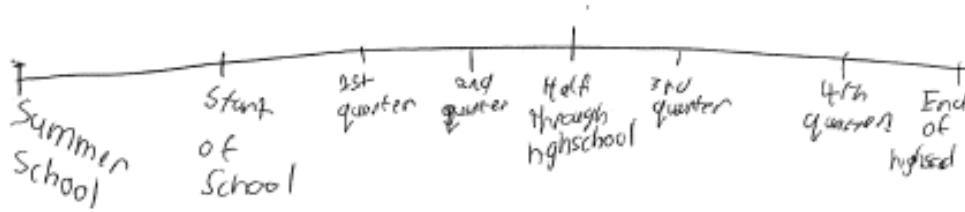 Summer
School
Start
of
School
1st
quarter
2nd
quarter
Half
through
hghschool
3rd
quarter
4th
quarter
End
of